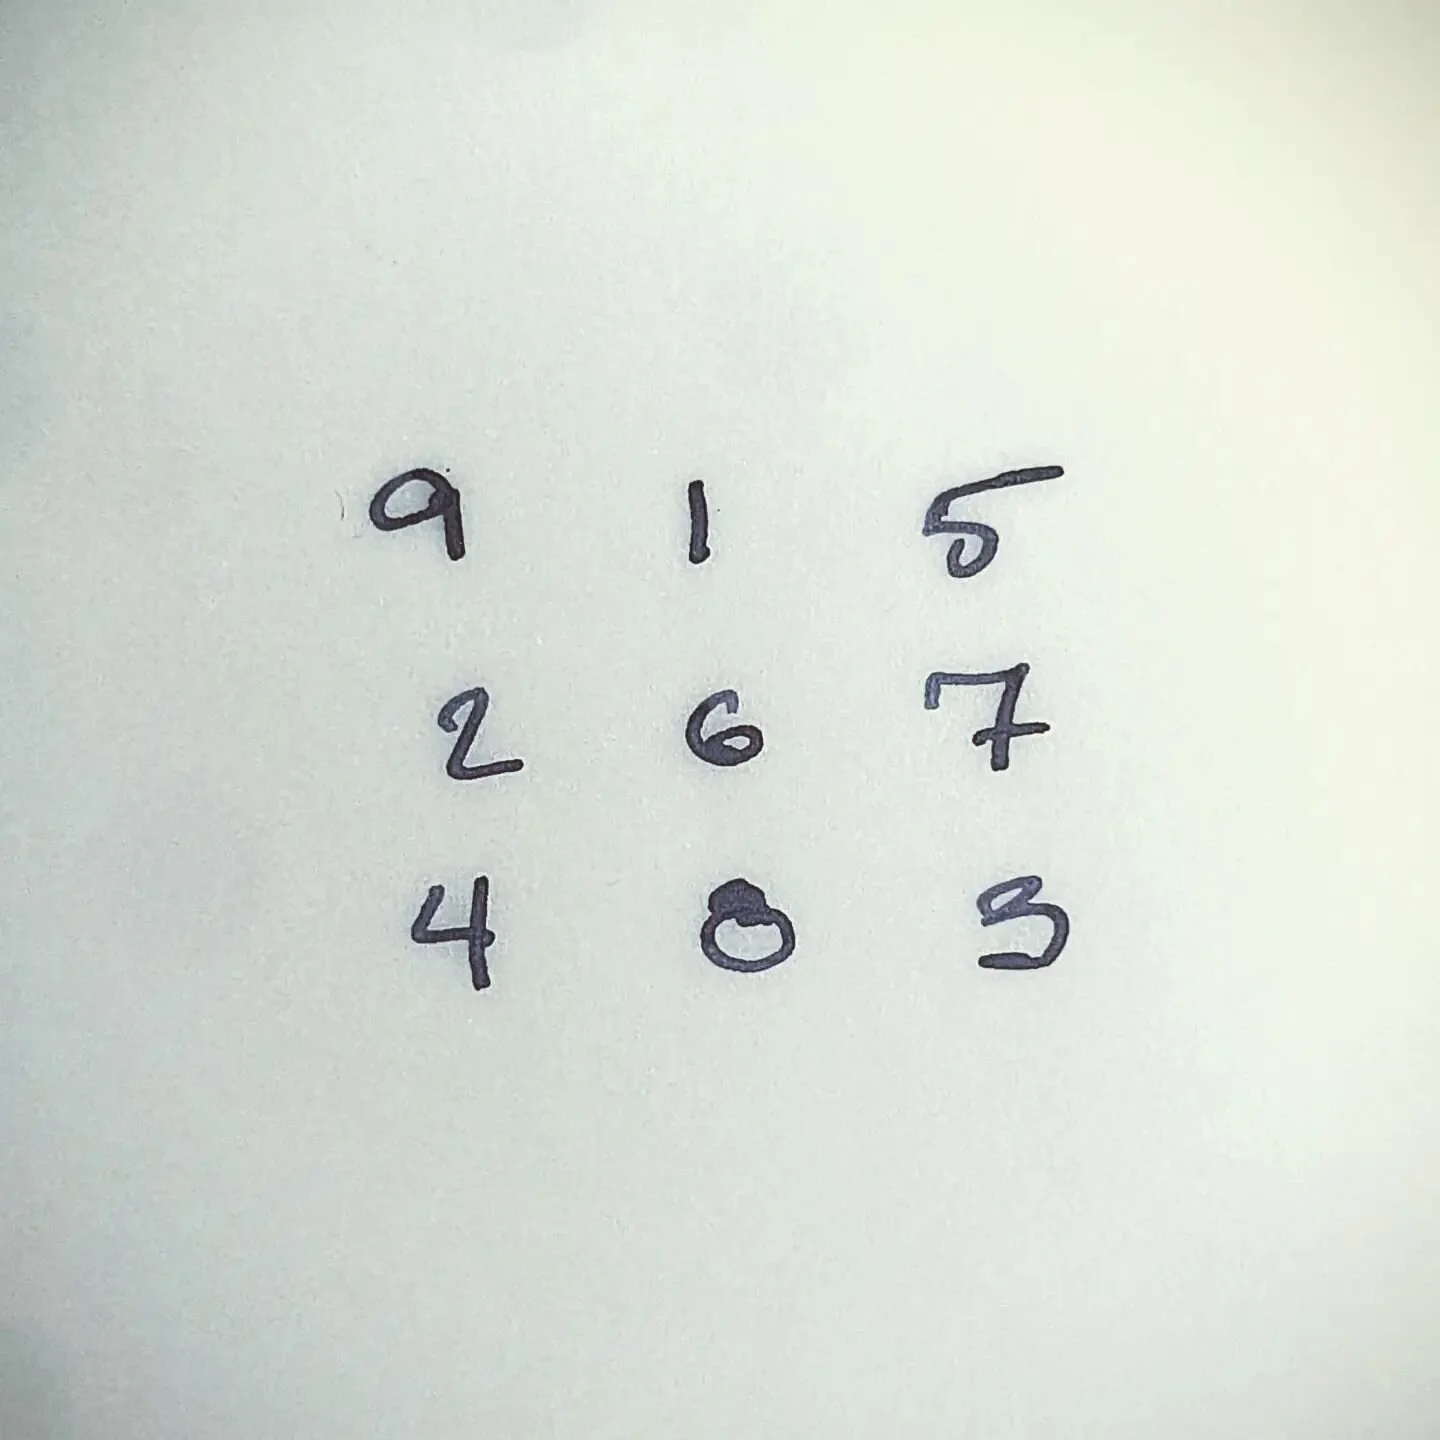 9 1 5
2 6 7
4 8 3